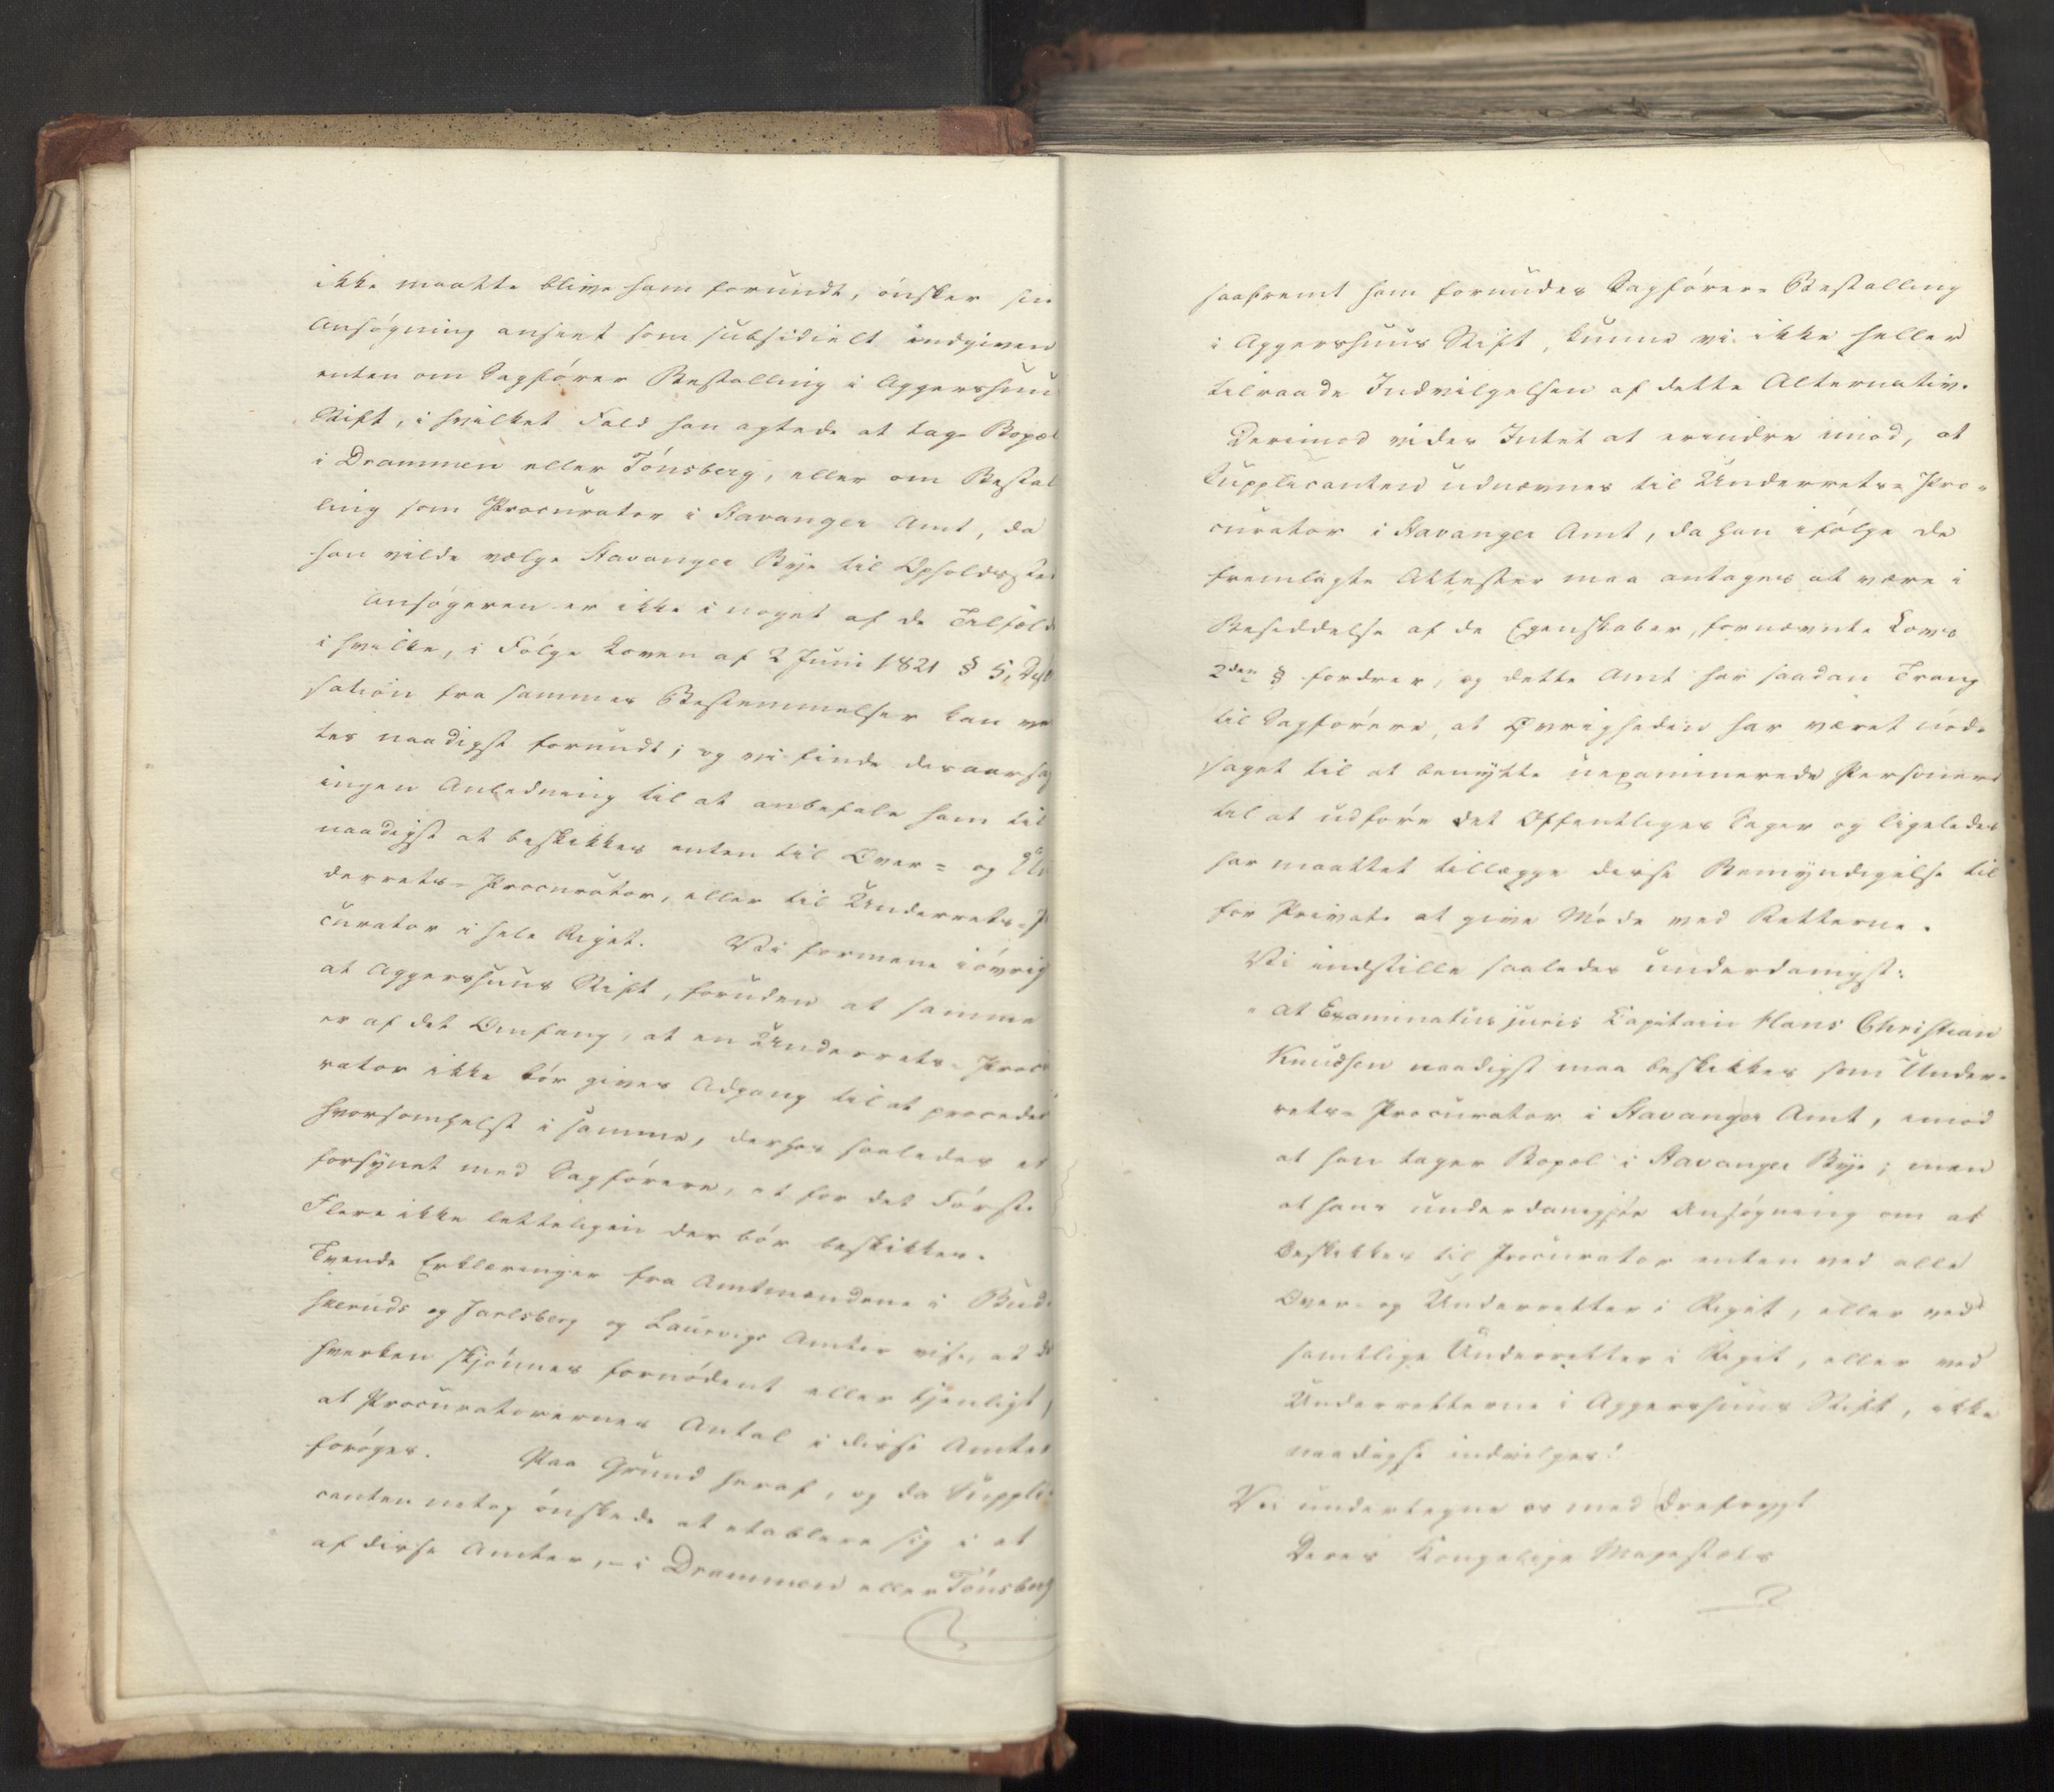 ikke maatte blive ham forundt, ønsker sin
Ansøgning anseet som subsidielt indgiven
enten om Sagfører Bestalling i Aggershuu
Stift, i hvilket Fald han agtede at tage Bopæl
i Drammen eller Tønsberg, eller om Bestal
ling som Procurator i Stavanger Amt, da
han vilde vælge Stavanger Bye til Opholdsste
Ansøgeren er ikke i noget af de Tilfæld
i hvilke, i Følge Loven af 2 Juni 1821 § 5,
sation fra sammes Bestemmelser kan
tes naadigst forundt; og vi finde desaarsag
ingen Anledning til at anbefale ham til
naadigst at beskikkes enten til Over= og Un
derrets=Procurator, eller til Underrets=P
curator i hele Riget. Vi formene iøvrig
at Aggershuus Stift, foruden at samme
er af det Omfang, at en Underrets=Procu
rator ikke bør gives Adgang til at procedere
hvorsomhelst i samme, derhos saaledes er
forsynet med Sagførere, at for det Første
Flere ikke letteligen der bør beskikkes.
Tvende Erklæringer fra Amtmændene i Bud=
skeruds og Jarlsberg og Laurvigs Amter vise, at d
hverken skjønnes fornødent eller tjenligt,
at Procuratorernes Antal i disse Amter
forøges. Paa Grund heraf, og da Suppli=
canten netop ønskede at etablere sig i et
af disse Amter, - i Drammen eller Tønsberg
saafremt ham forundes Sagfører=Bestalling
i Aggershuus Stift, kunne vi ikke heller
tilraade Indvilgelsen af dette Alternativ.
Derimod vides Intet at erindre imod, at
Supplicanten udnævnes til Underrets=Pro=
curator i Stavanger Amt, da han ifølge de
fremlagte Attester maa antages at være i
Besiddelse af de Egenskaber, fornævnte Lovs
2den § fordrer, og dette Amt har saadan Trang
til Sagførere, at Øvrigheden har været nød=
saget til at benytte uexaminerede Personer
til at udføre det Offentliges Sager og ligeledes
har maattet tillægge disse Bemyndigelse til
for Private at give Møde ved Retterne.
Vi indstille saaledes underdanigst:
"at Examinatus juris Capitain Hans Christian
Knudsen naadigst maa beskikkes som Under=
rets=Procurator i Stavanger Amt, imod
at han tager Bopæl i Stavanger Bye; men
at hans underdanigste Ansøgning om at
beskikkes til Procurator enten ved alle
Over- og Underretter i Riget, eller ved
samtlige Underretter i Riget, eller ved
Underretterne i Aggershuus Stift, ikke
naadigst indvilges!
Vi undertegne os med Ærefrygt
Deres Kongelige Majestæts